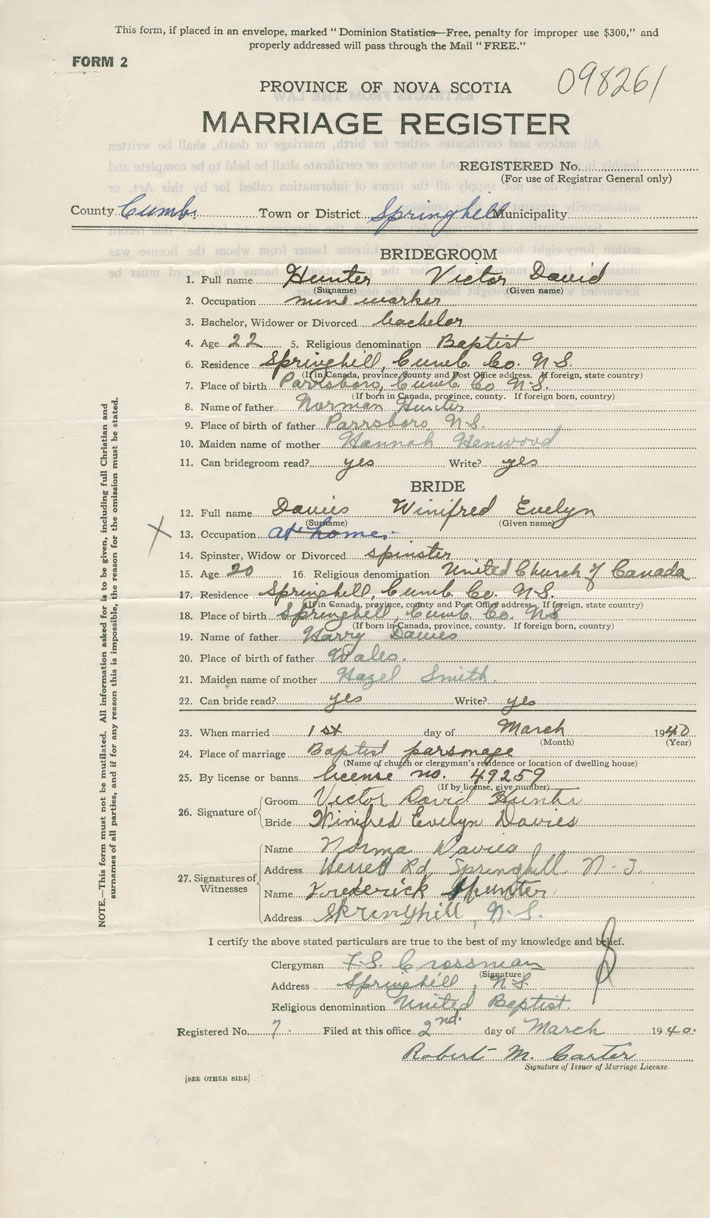 This form, if placed in an envelope, marked "Dominion Statistics—Free, penalty for improper use $300," and
properly addressed will pass through the Mail "FREE."
FORM 2
098261
PROVINCE OF NOVA SCOTIA
MARRIAGE REGISTER
REGISTERED No.
(For use of Registrar General only)
County Cumb. Town or District Springhill Municipality
BRIDEGROOM
1. Full name Hunter Victor David
(Surname) (Given name)
2. Occupation mine worker
3. Bachelor, Widower or Divorced bachelor
4. Age 22 5. Religious denomination Baptist
6. Residence Springhill, Cumb. Co. N.S.
(If in Canada, province, county and Post Office address. If foreign, state country)
7. Place of birth Parrsboro, Cumb. Co N.S.
(If born in Canada, province, county. If foreign born, country)
8. Name of father Norman Hunter
9. Place of birth of father Parrsboro N.S.
10. Maiden name of mother Hannah Henwood
11. Can bridegroom read? yes Write? yes
BRIDE
12. Full name Davies Winifred Evelyn
(Surname) (Given name)
13. Occupation at home.
14. Spinster, Widow or Divorced spinster
15. Age 20 16. Religious denomination United Church of Canada
17. Residence Springhill, Cumb. Co. N.S.
(If in Canada, province, county and Post Office address. If foreign, state country)
18. Place of birth Springhill, Cumb. Co. N.S
(If born in Canada, province, county. If foreign born, country)
19. Name of father Harry Davies
20. Place of birth of father Wales.
21. Maiden name of mother Hazel Smith.
22. Can bride read? yes Write? yes
23. When married 1st day of March 1940
(Month) (Year)
24. Place of marriage Baptist parsonage
(Name of church or clergyman's residence or location of dwelling house)
25. By license or banns license no. 49259
(If by license, give number)
26. Signature of
Groom Victor David Hunter
Bride Winifred Evelyn Davies
27. Signatures of Witnesses
Name Norma Davies
Address Herrett Rd, Springhill, N.S.
Name Frederick Hunter
Address Springhill, N.S.
I certify the above stated particulars are true to the best of my knowledge and belief.
Clergyman F.S. Crossman
(Signature)
Address Springhill, N.S.
Religious denomination United Baptist.
Registered No. 7. Filed at this office 2nd. day of March 1940.
Robert M. Carter
Signature of Issuer of Marriage License.
[SEE OTHER SIDE]
NOTE.—This form must not be mutilated. All information asked for is to be given, including full Christian and
surnames of all parties, and if for any reason this is impossible, the reason for the omission must be stated.